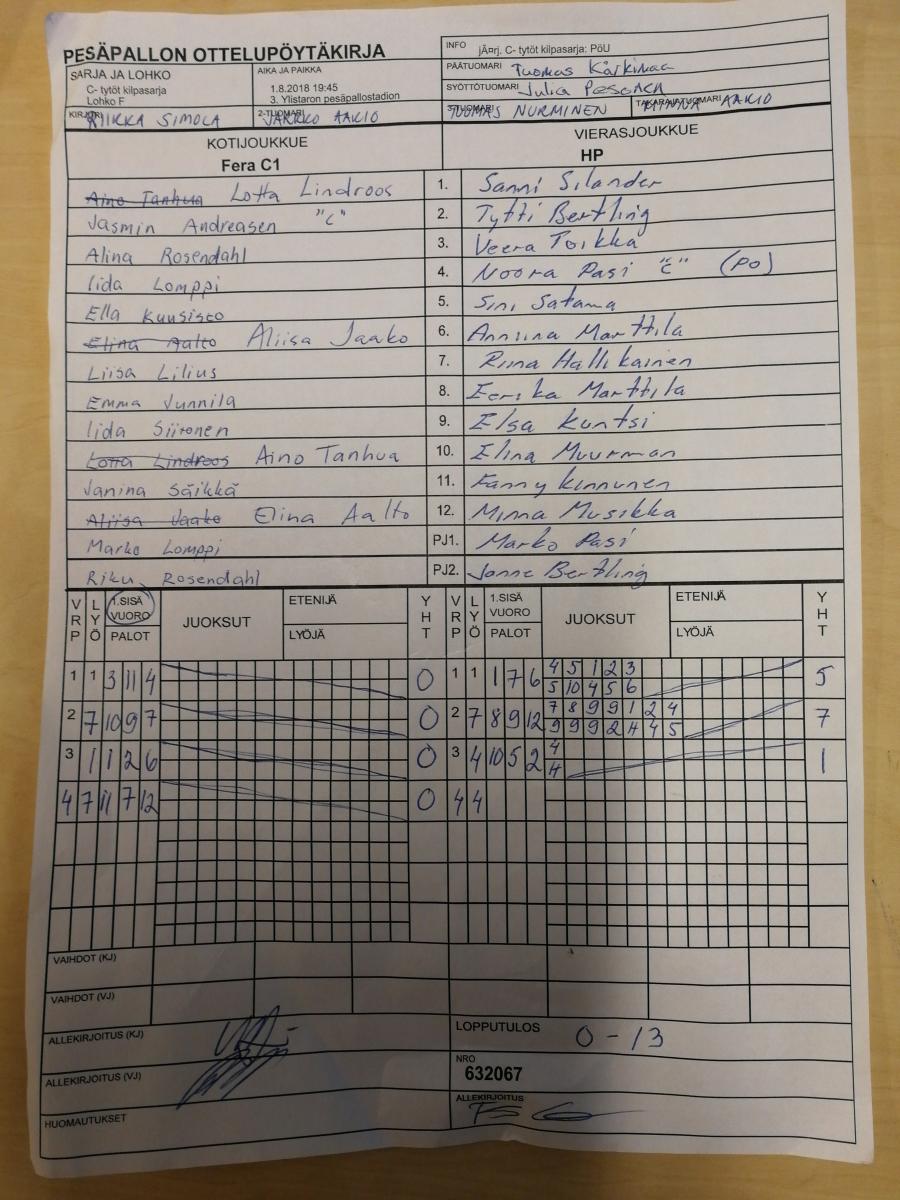 PESÄPALLON OTTELUPÖYTÄKIRJA
INFO jÄ¤rj. C- tytöt kilpasarja: PöU
SARJA JA LOHKO
C- tytöt kilpasarja
Lohko F
AIKA JA PAIKKA
1.8.2018 19:45
3. Ylistaron pesäpallostadion
PÄÄTUOMARI Tuomas Kärkimaa
SYÖTTÖTUOMARI Julia Pesonen
KIRJURI RIIKKA SIMOLA
2-TUOMARI JARKKO AAKIO
3-TUOMARI TUOMAS NURMINEN
TAKARAJATUOMARI MINNA AAKIO
KOTIJOUKKUE
Fera C1
VIERASJOUKKUE
HP
Aino Tanhua Lotta Lindroos 1. Sanni Silander
Jasmin Andreasen "C" 2. Tytti Bertling
Alina Rosendahl 3. Veera Toikka
Iida Lomppi 4. Noora Pasi "C" (PO)
Ella Kuusisto 5. Sini Satama
Elina Aalto Aliisa Jaako 6. Anniina Marttila
Liisa Lilius 7. Riina Hallikainen
Emma Junnila 8. Eerika Marttila
Iida Siironen 9. Elsa Kuntsi
Lotta Lindroos Aino Tanhua 10. Elina Muurman
Janina Säikkä 11. Fanny Kinnunen
Aliisa Jaako Elina Aalto 12. Minna Musikka
Marko Lomppi PJ1. Marko Pasi
Riku Rosendahl PJ2. Janne Bertling
VRP LYÖ 1.SISÄ VUORO PALOT JUOKSUT ETENIJÄ LYÖJÄ YHT VRP LYÖ 1.SISÄ VUORO PALOT JUOKSUT ETENIJÄ LYÖJÄ YHT
1 1 3 11 4 0 1 1 1 7 6 4 5 1 2 3 5
5 10 4 5 6
2 7 10 9 7 0 2 7 8 9 12 7 8 9 9 1 2 4 7
9 9 9 2 4 4 5
3 1 1 2 6 0 3 4 10 5 2 4 1
4
4 7 11 7 12 0 4 4
VAIHDOT (KJ)
VAIHDOT (VJ)
ALLEKIRJOITUS (KJ)
LOPPUTULOS 0 - 13
ALLEKIRJOITUS (VJ)
NRO
632067
HUOMAUTUKSET
ALLEKIRJOITUS